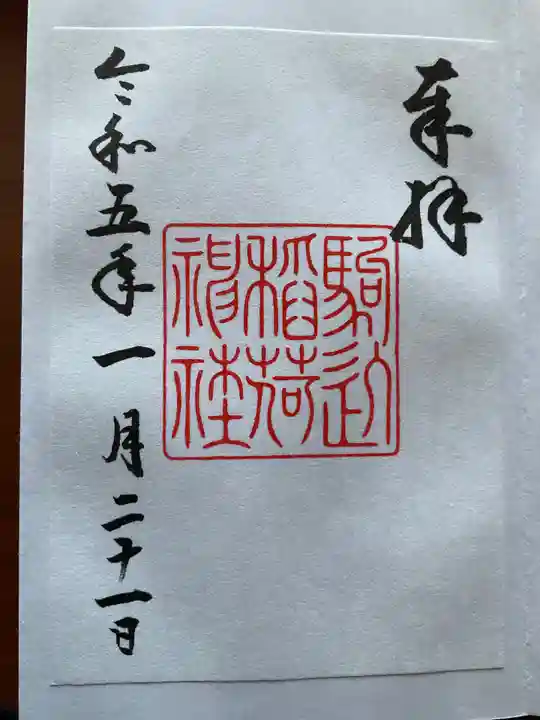 奉拝
駒込
稲荷
神社
令和五年一月二十一日